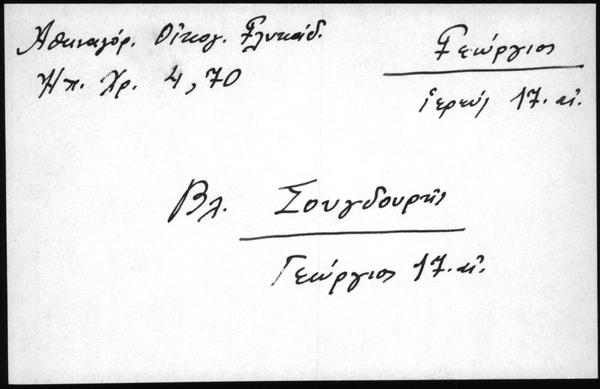 Ἀθηναγόρ. Οἰκογ. Γλυκάδ.
Ἠπ. Χρ. 4, 70
Γεώργιος
ἱερεύς 17. αἰ.
Βλ. Σουγδουρῆς
Γεώργιος 17. αἰ.